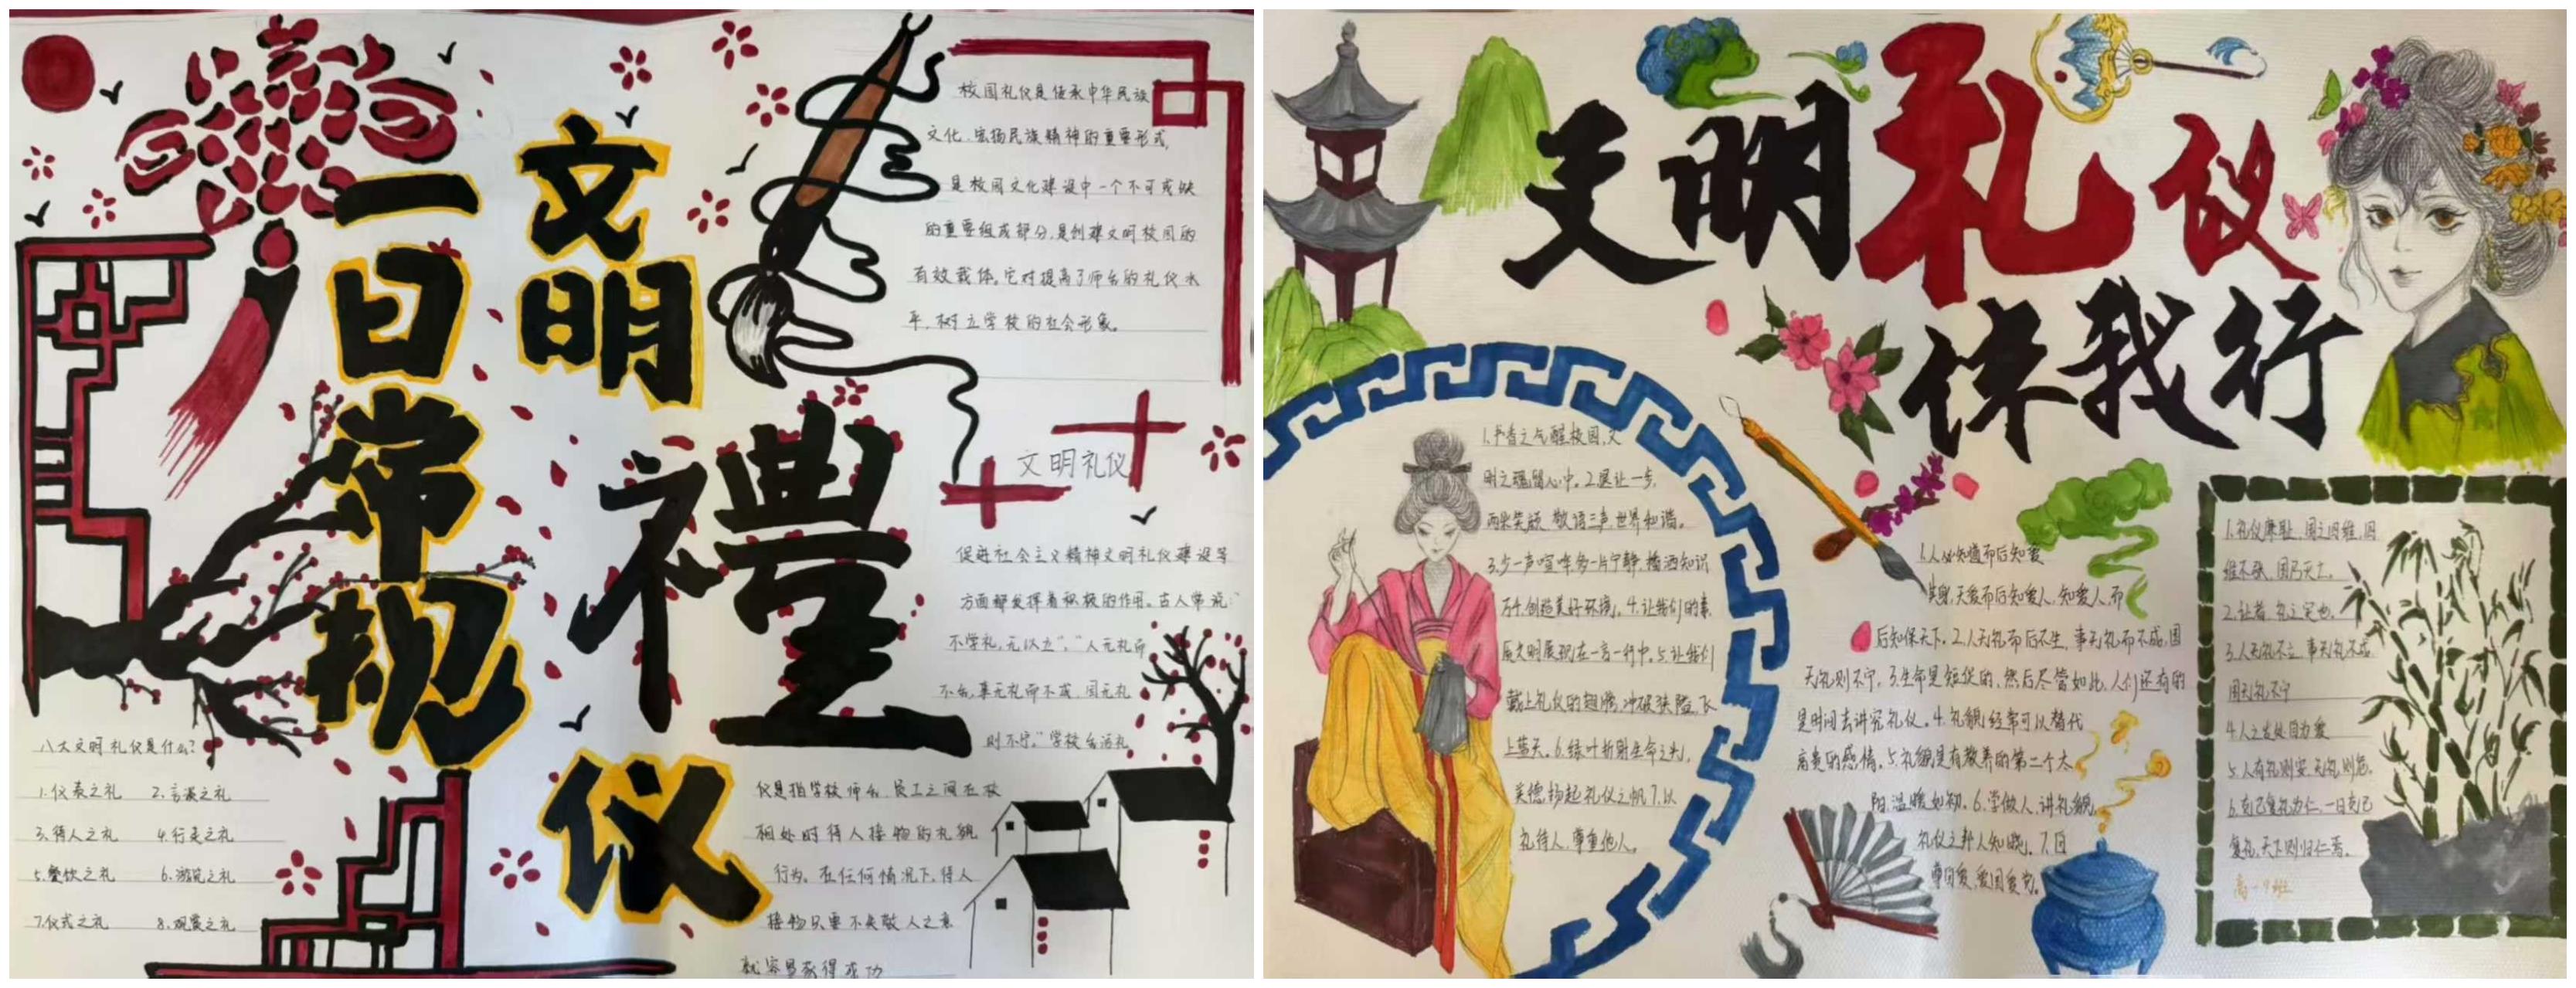 文明
禮
仪
一日常礽
校园礼仪是传承中华民族
文化、宏扬民族精神的重要形式,
是校园文化建设中一个不可或缺
的重要组成部分,是创建文明校园的
有效载体。它对提高了师生的礼仪水
平,树立学校的社会形象。
文明礼仪
促进社会主义精神文明礼仪建设等
方面都发挥着积极的作用。古人常说:“
不学礼,无以立”,“人无礼而
不生,事无礼而不成,国无礼
则不宁。”学校生活礼
仪是指学校师生、员工之间在校
相处时待人接物的礼貌
行为。在任何情况下,待人
接物只要不失敬人之意
就容易获得成功
八大文明礼仪是什么?
1.仪表之礼 2.言谈之礼
3.待人之礼 4.行走之礼
5.餐饮之礼 6.游览之礼
7.仪式之礼 8.观赏之礼
文明礼仪
伴我行
1.书香之气醒校园,文
明之瑰留心中。2.退让一步,
两朵笑颜 敬语三声,世界和谐。
3.少一声喧哗多一片宁静,播洒知识
万千,创造美好环境。4.让我们的素
质文明展现在一言一行中。5.让我们
戴上礼仪的翅膀,冲破狭隘,飞
上蓝天。6.绿叶折射生命之光,
美德扬起礼仪之帆 7.以
礼待人,尊重他人。
1.人必知道而后知爱
身,知爱而后知爱人,知爱人而
后知保天下。2.人无礼而后不生,事无礼而不成,国
无礼则不宁。3.生命是短促的,然后尽管如此,人们还有的
是时间去讲究礼仪。4.礼貌经常可以替代
高贵的感情。5.礼貌是有教养的第二个太
阳,温暖如初。6.学做人,讲礼貌,
礼仪之邦人知晓。7.自
尊自爱,爱国爱党。
1.礼仪廉耻,国之四维,四
维不张,国乃灭亡。
2.让者,礼之
3.人无礼不立 事无礼不成
国无礼不宁
4.人之
5.人有礼则安,无礼则危。
6.克己复礼为仁,一日克己
复礼,天下则归仁焉。
高一9班